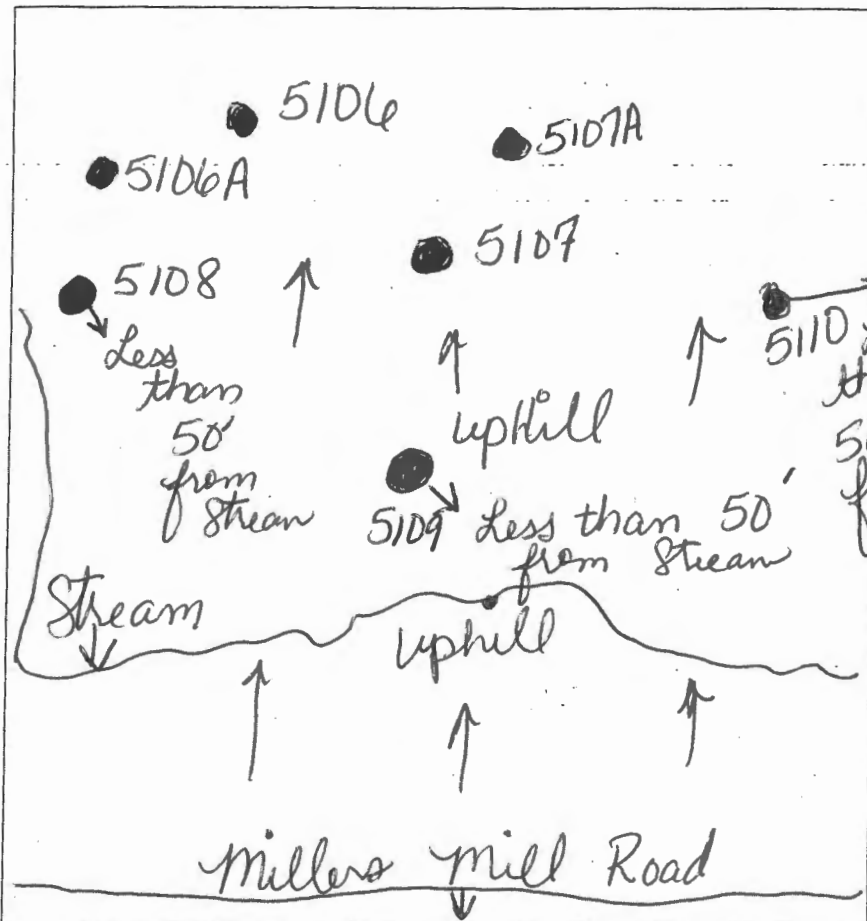 5106
5107A
5106A
5107
5108
5110
Less
than
50'
from
Stream
uphill
5109
Less than 50'
from Stream
Stream
uphill
Millers Mill Road